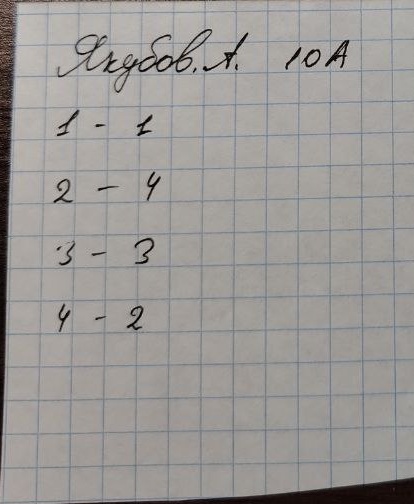 Якубов. А. 10А
1 - 1
2 - 4
3 - 3
4 - 2